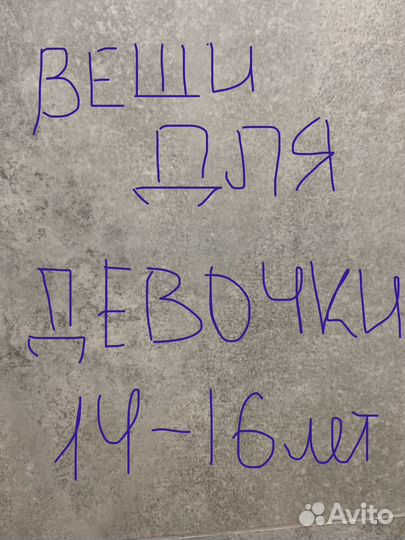 ВЕЩИ
ДЛЯ
ДЕВОЧКИ
14-16 лет
Avito